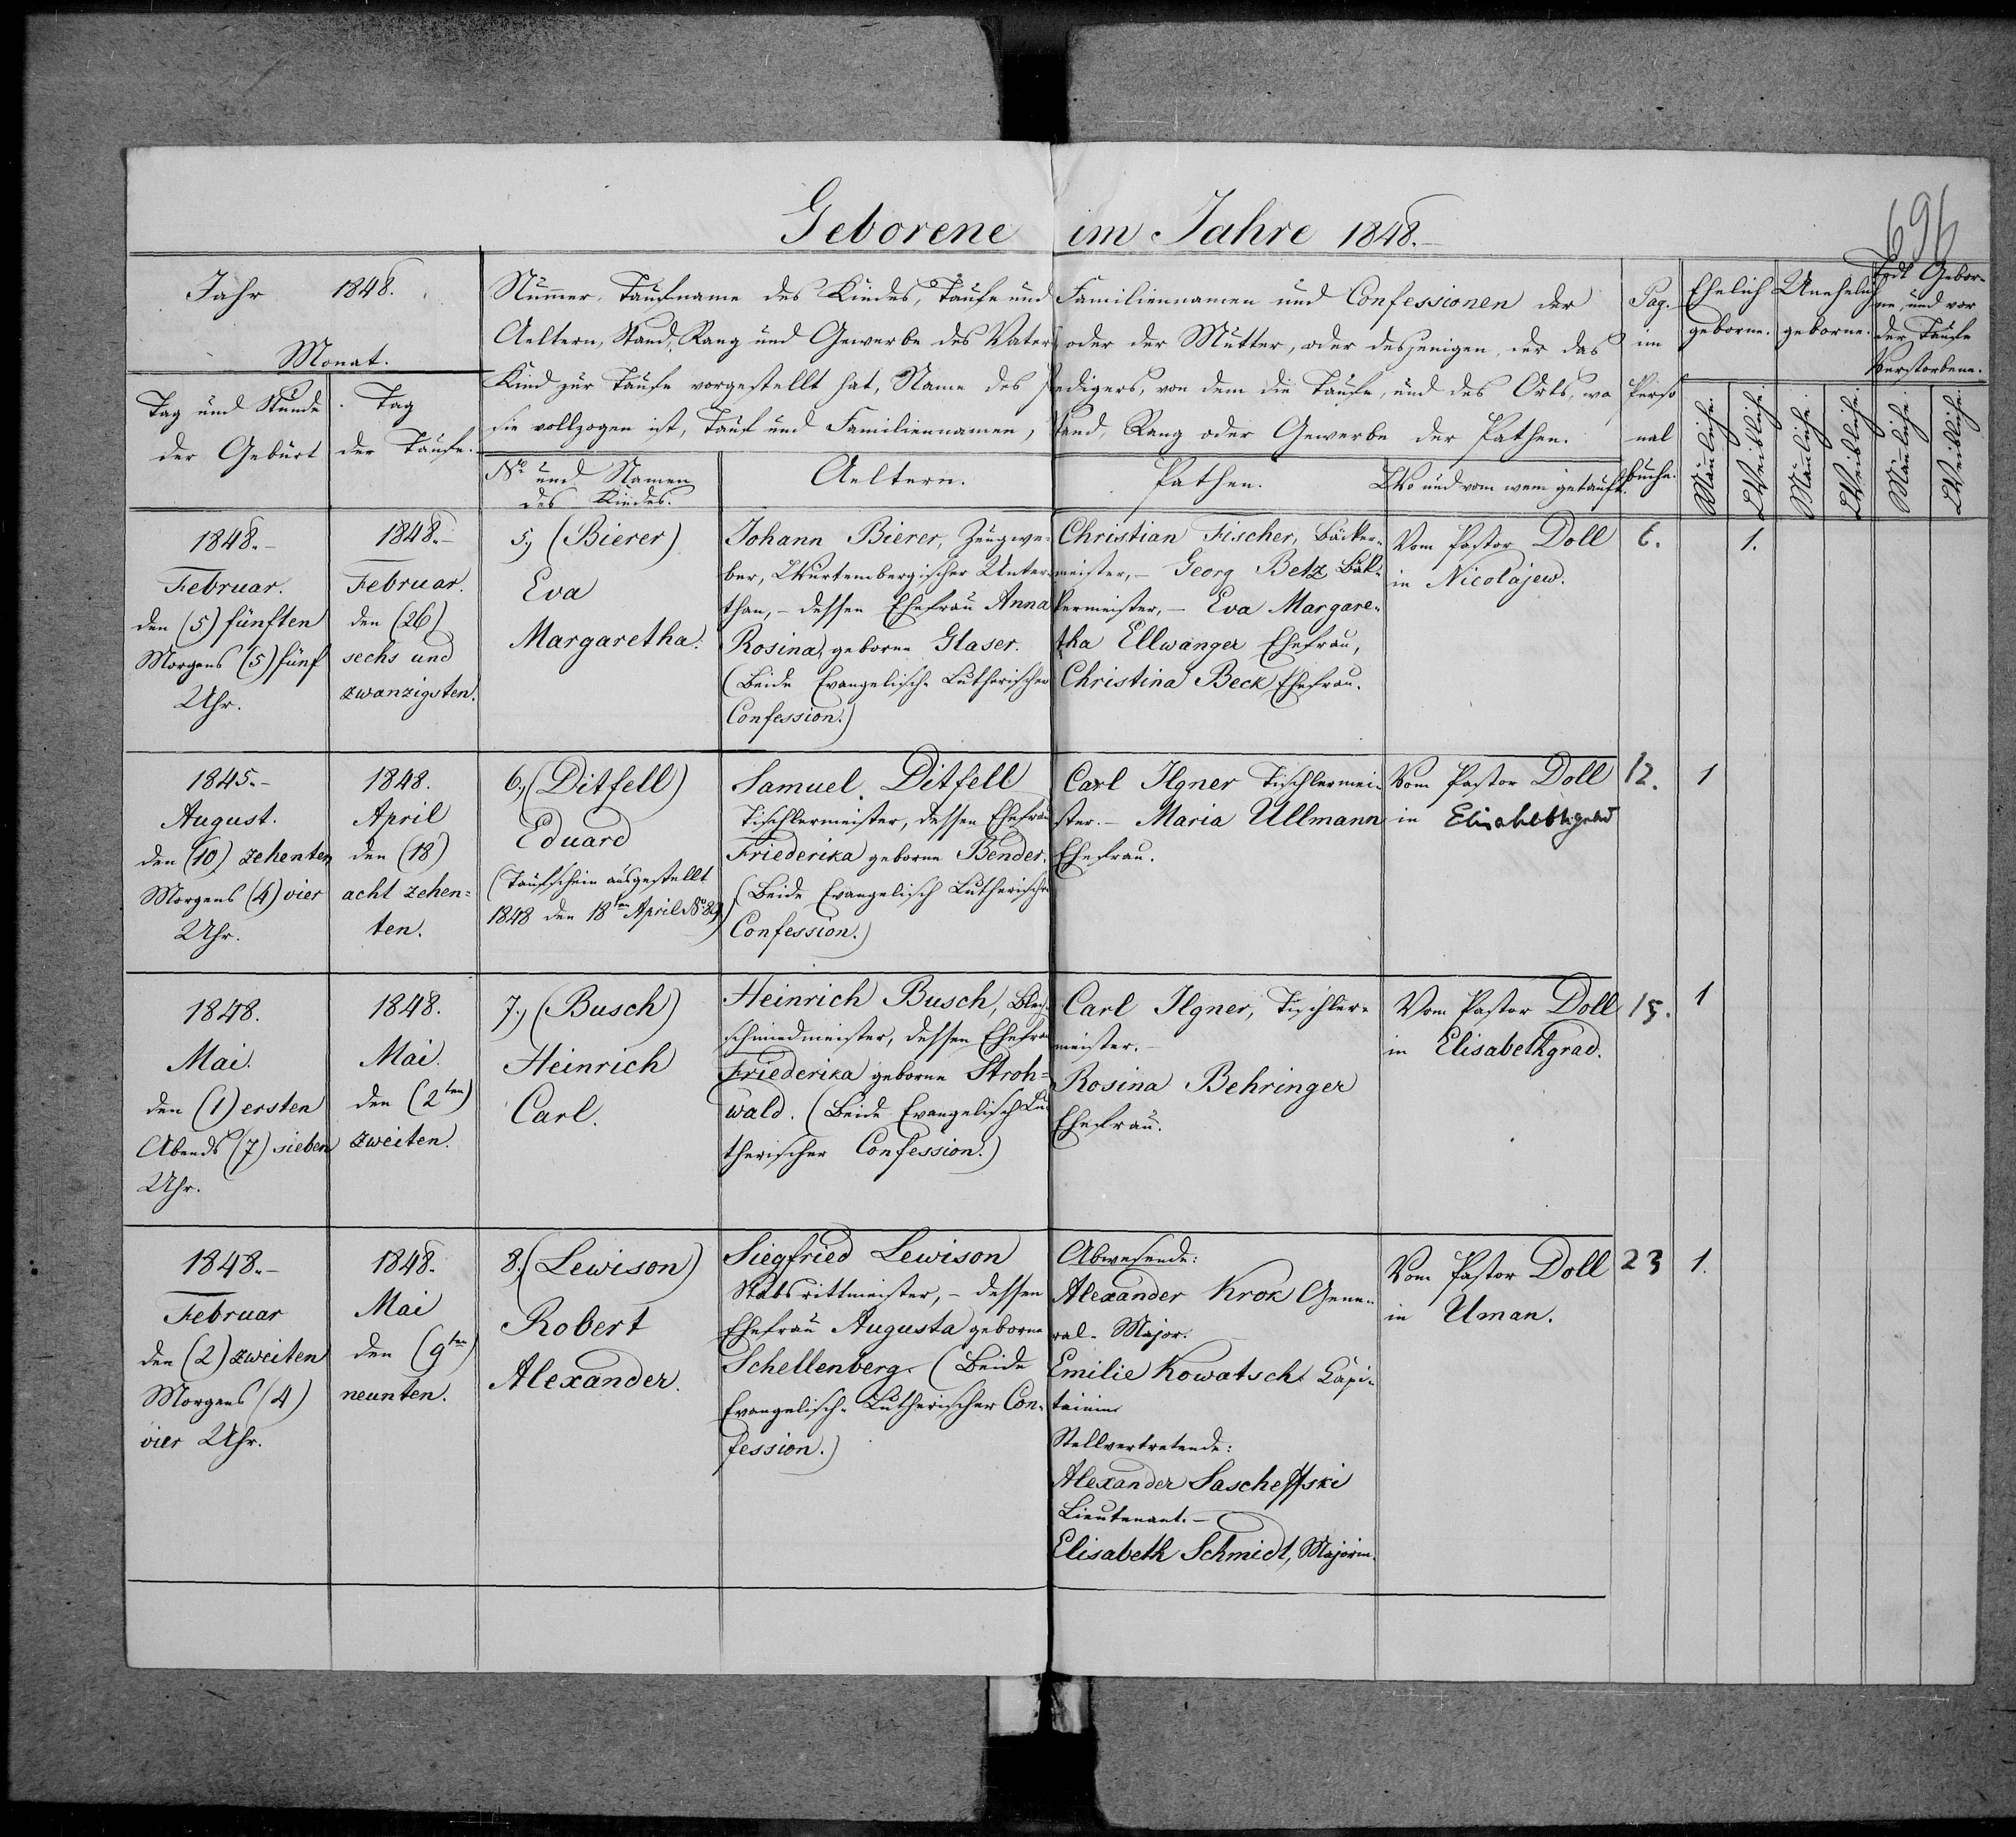 696
Geborene im Jahre 1848.-
Jahr 1848.
Monat.
Tag und Stunde
der Geburt
Tag
der Taufe.
Nummer, Taufname des Kindes, Taufe und Familiennamen und Confessionen der
Aeltern, Stand, Rang und Gewerbe des Vaters oder der Mutter, oder desjenigen, der das
Kind zur Taufe vorgestellt hat, Name des Predigers, von dem die Taufe, und des Orts, wo
sie vollzogen ist, Tauf und Familiennamen, Stand, Rang oder Gewerbe der Pathen.
No und Namen
des Kindes.
Aeltern.
Pathen.
Wo und vom wem getauft.
Pag.
im
Perso
nal
buche.
Ehelich
geborne.
Unehelich
geborne.
Todt Gebor-
ne, und vor
der Taufe
Verstorbene.
Männliche.
Weibliche.
Männliche.
Weibliche.
Männliche.
Weibliche.
1848.-
Februar.
den (5) fünften
Morgens (5) fünf
Uhr.
1848.-
Februar.
den (26)
sechs und
zwanzigsten.
5., (Bierer)
Eva
Margaretha.
Johann Bierer, Zeugwe-
ber, Wurtembergischer Unter-
than, - dessen Ehefrau Anna
Rosina, geborne Glaser.
(Beide Evangelisch-Lutherischer
Confession.)
Christian Fischer, Bäcker-
meister, - Georg Betz Bäk-
kermeister, - Eva Margare-
tha Ellwanger Ehefrau,
Christina Beck Ehefrau.
Vom Pastor Doll
in Nicolajew.
6.
1.
1845.-
August.
den (10) zehenten
Morgens (4) vier
Uhr.
1848.
April
den (18)
acht zehen=
ten.
6., (Ditfell)
Eduard
(Taufschein ausgestellt
1848 den 18ten April No 89)
Samuel Ditfell
Tischlermeister, dessen Ehefrau
Friederika geborne Bender.
(Beide Evangelisch Lutherischer
Confession.)
Carl Ilgner Tischlermei-
ster. - Maria Ullmann
Ehefrau.
Vom Pastor Doll
in Elisabethgrad
12.
1
1848.
Mai.
den (1) ersten
Abends (7) sieben
Uhr.
1848.
Mai.
den (2ten)
zweiten.
7., (Busch)
Heinrich
Carl.
Heinrich Busch, Blech-
schmiedmeister, dessen Ehefrau
Friederika geborne Stroh=
wald. (Beide Evangelisch Lu-
therischer Confession.)
Carl Ilgner, Tischler-
meister.-
Rosina Behringer
Ehefrau.
Vom Pastor Doll
in Elisabethgrad.
15.
1
1848.-
Februar
den (2) zweiten
Morgens (4)
vier Uhr.
1848.
Mai
den (9ten)
neunten.
8., (Lewison)
Robert
Alexander.
Siegfried Lewison
Stabsrittmeister, - dessen
Ehefrau Augusta geborne
Schellenberg. (Beide
Evangelisch-Lutherischer Con-
fession.)
Abwesende:
Alexander Krok Gene-
ral-Major.
Emilie Kowatsch. Capi-
tainin
Stellvertretende:
Alexander Sascheffski
Lieutenant.-
Elisabeth Schmidt, Majorin.
Vom Pastor Doll
in Uman.
23
1.